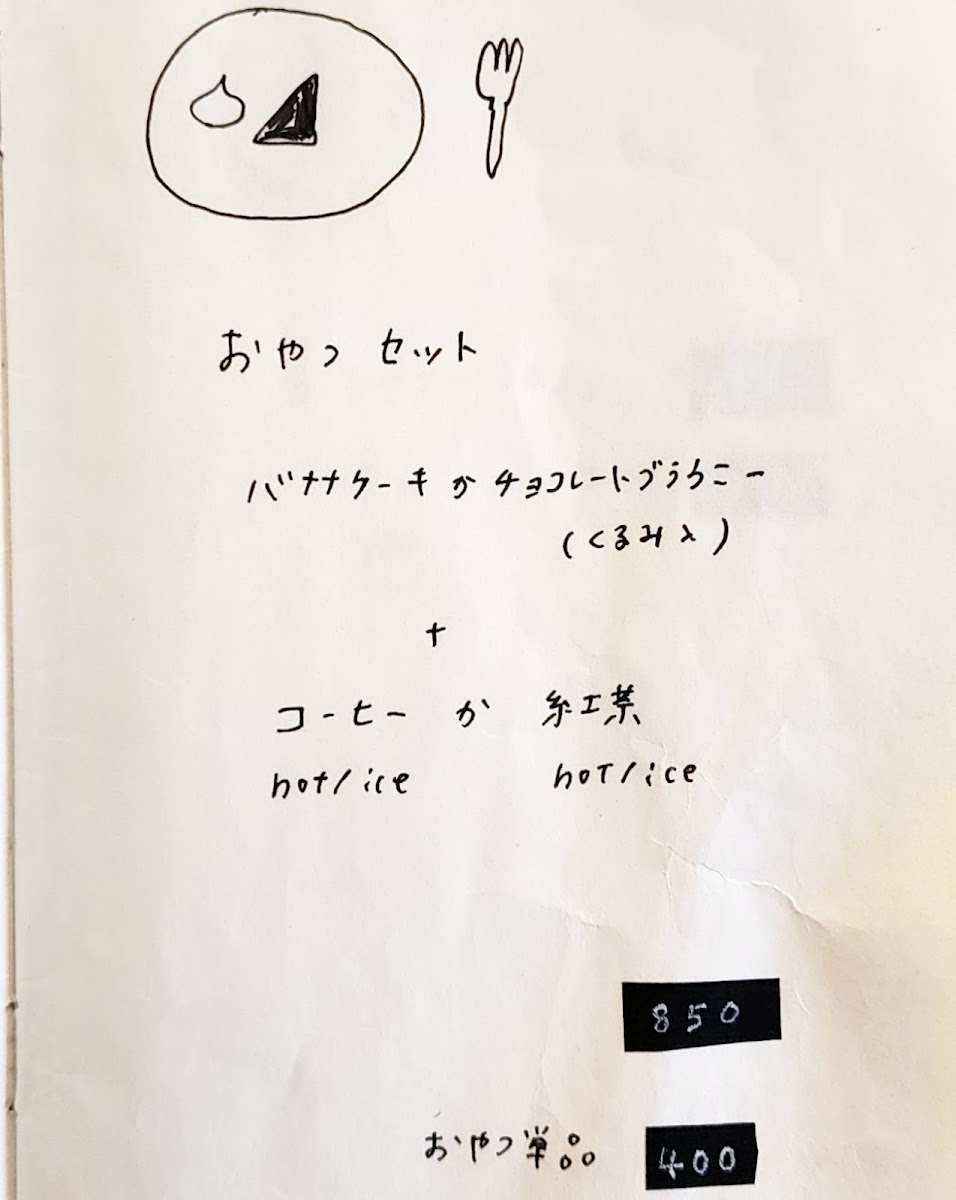 おやつ セット
バナナケーキ か チョコレートブラウニー
(くるみ入)
+
コーヒー か 紅茶
hot/ice hoT/ice
850
おやつ単品 400